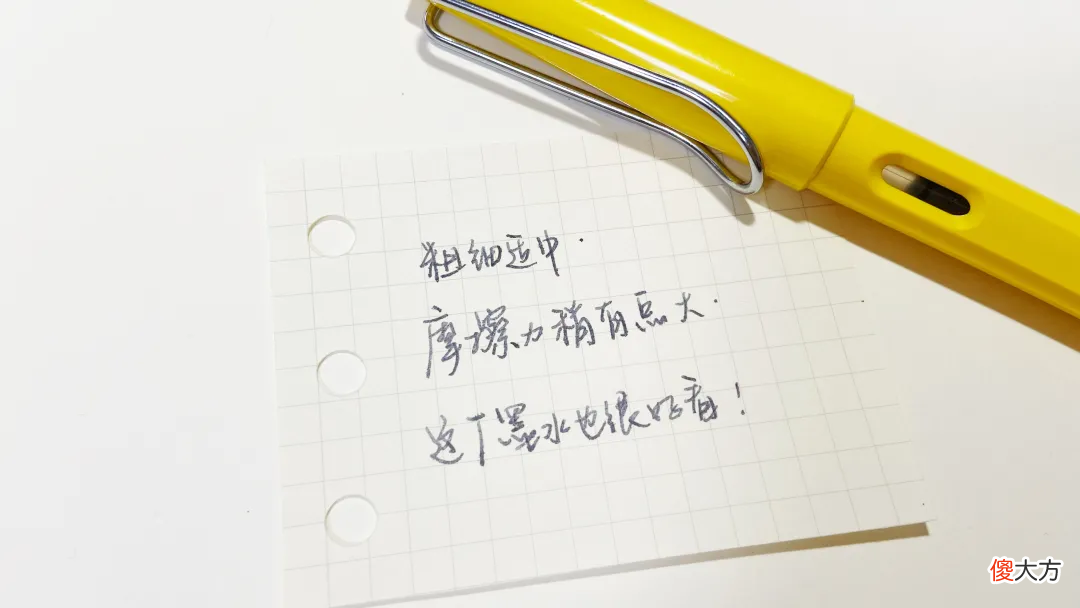 粗细适中.
摩擦力稍有点大.
这个墨水也很好看!
傻大方